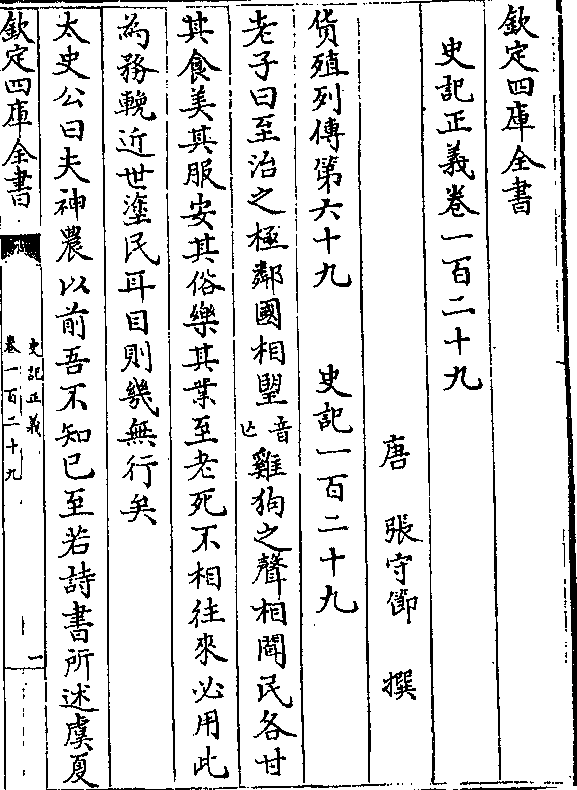 欽定四庫全書
史記正義卷一百二十九
唐 張守節 撰
貨殖列傳第六十九 史記一百二十九
老子曰至治之極鄰國相望音亡雞狗之聲相聞民各甘
其食美其服安其俗樂其業至老死不相往來必用此
為務輓近世塗民耳目則幾無行矣
太史公曰夫神農以前吾不知已至若詩書所述虞夏
欽定四庫全書
史記正義
卷一百二十九
一